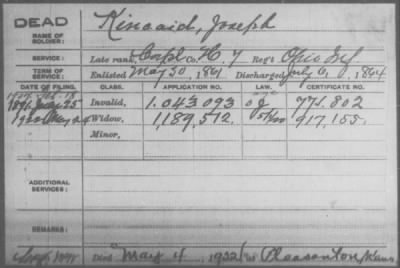 DEAD
NAME OF SOLDIER:
Kincaid, Joseph
SERVICE:
Late rank, Corpl Co. H, 7 Reg't Ohio Inf.
TERM OF SERVICE:
Enlisted May 30, 1861 Discharged July 6, 1864
DATE OF FILING. CLASS. APPLICATION NO. LAW. CERTIFICATE NO.
Invalid, 1.043.093 771.802
1922 May 24 Widow, 1,189,512. 917,155.
Minor,
ADDITIONAL SERVICES:
REMARKS:
Died May 4, 1922, at Pleasanton, Kans